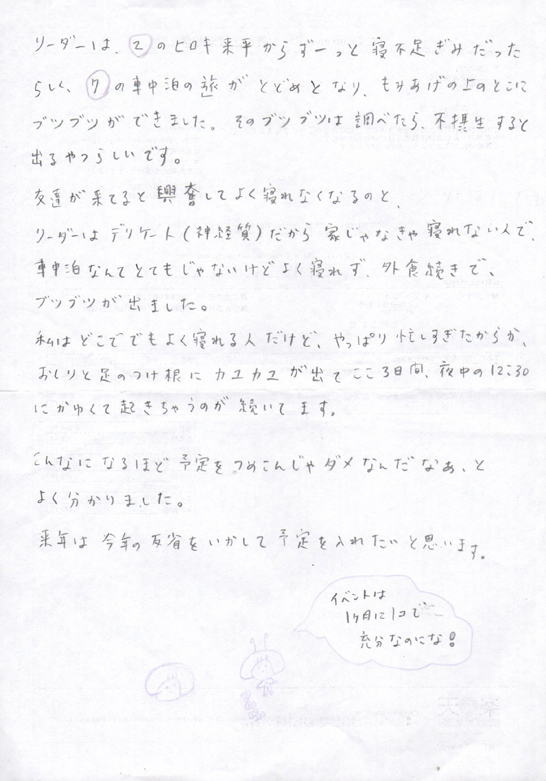 リーダーは、②のヒロキ来平からずーっと寝不足ぎみだった
らしく、⑦の車中泊の旅がとどめとなり、もみあげの上のとこに
ブツブツができました。そのブツブツは調べたら、不摂生すると
出るやつらしいです。
友達が来てると興奮してよく寝れなくなるのと、
リーダーはデリケート(神経質)だから家じゃなきゃ寝れない人で、
車中泊なんてとてもじゃないけどよく寝れず、外食続きで、
ブツブツが出ました。
私はどこででもよく寝れる人だけど、やっぱり忙しすぎたからか、
おしりと足のつけ根にカユカユが出てここ3日間、夜中の12:30
にかゆくて起きちゃうのが続いてます。
こんなになるほど予定をつめこんじゃダメなんだなぁ、と
よく分かりました。
来年は今年の反省をいかして予定を入れたいと思います。
イベントは
1ヶ月に1コで
充分なのにな!